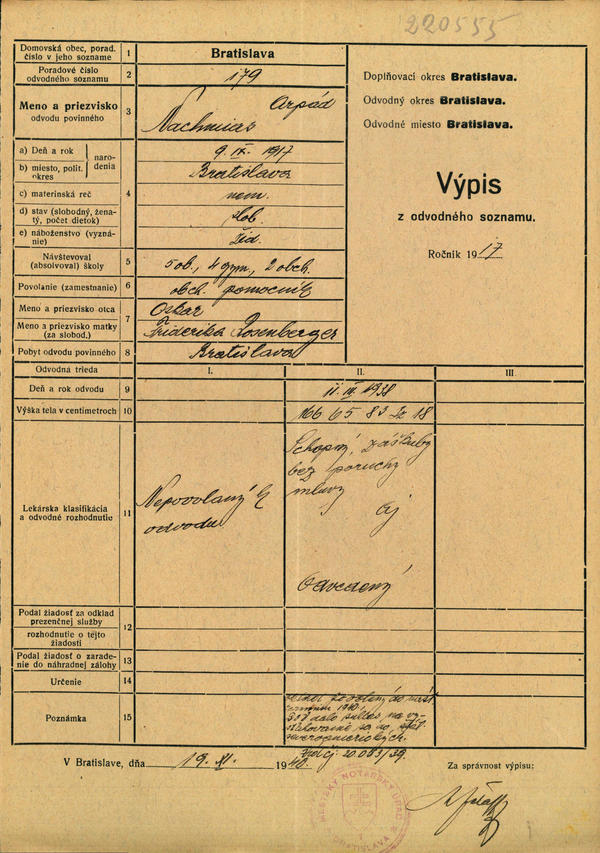 220555
Domovská obec, porad. číslo v jeho sozname 1 Bratislava
Poradové číslo odvodného soznamu 2 179
Meno a priezvisko odvodu povinného 3 Arpád
Nachmias
Doplňovací okres Bratislava.
Odvodný okres Bratislava.
Odvodné miesto Bratislava.
Výpis
z odvodného soznamu.
Ročník 1917
a) Deň a rok narodenia 9. IX. 1917
b) miesto, polit. okres Bratislava
4
c) materinská reč nem.
d) stav (slobodný, ženatý, počet dietok) slob.
e) náboženstvo (vyznánie) žid.
Návštevoval (absolvoval) školy 5 5 ob., 4 gym., 2 obch.
Povolanie (zamestnanie) 6 obch. pomocník
Meno a priezvisko otca 7 Oskar
Meno a priezvisko matky (za slobod.) Friderika Rosenberger
Pobyt odvodu povinného 8 Bratislava
Odvodná trieda I. II. III.
Deň a rok odvodu 9 11. III. 1938
Výška tela v centimetroch 10 166 65 83 18
Lekárska klasifikácia a odvodné rozhodnutie 11
Nepovolaný k odvodu
Schopný, zášklby
bez poruchy
mluvy
Odvedený
Podal žiadosť za odklad prezenčnej služby
12
rozhodnutie o tejto žiadosti
Podal žiadosť o zaradenie do náhradnej zálohy 13
Určenie 14
Poznámka 15
1940
čj. 20.083/39.
V Bratislave, dňa 19. XI. 1940.
Za správnosť výpisu:
MESTSKÝ NOTÁRSKY ÚRAD
BRATISLAVA